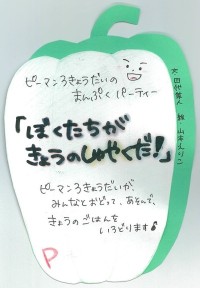 ピーマン3きょうだいの
まんぷくパーティー
「ぼくたちが
きょうのしゅやくだ!」
ピーマン3きょうだいが、
みんなとおどって、あそんで、
きょうのごはんを
いろどります♪
P